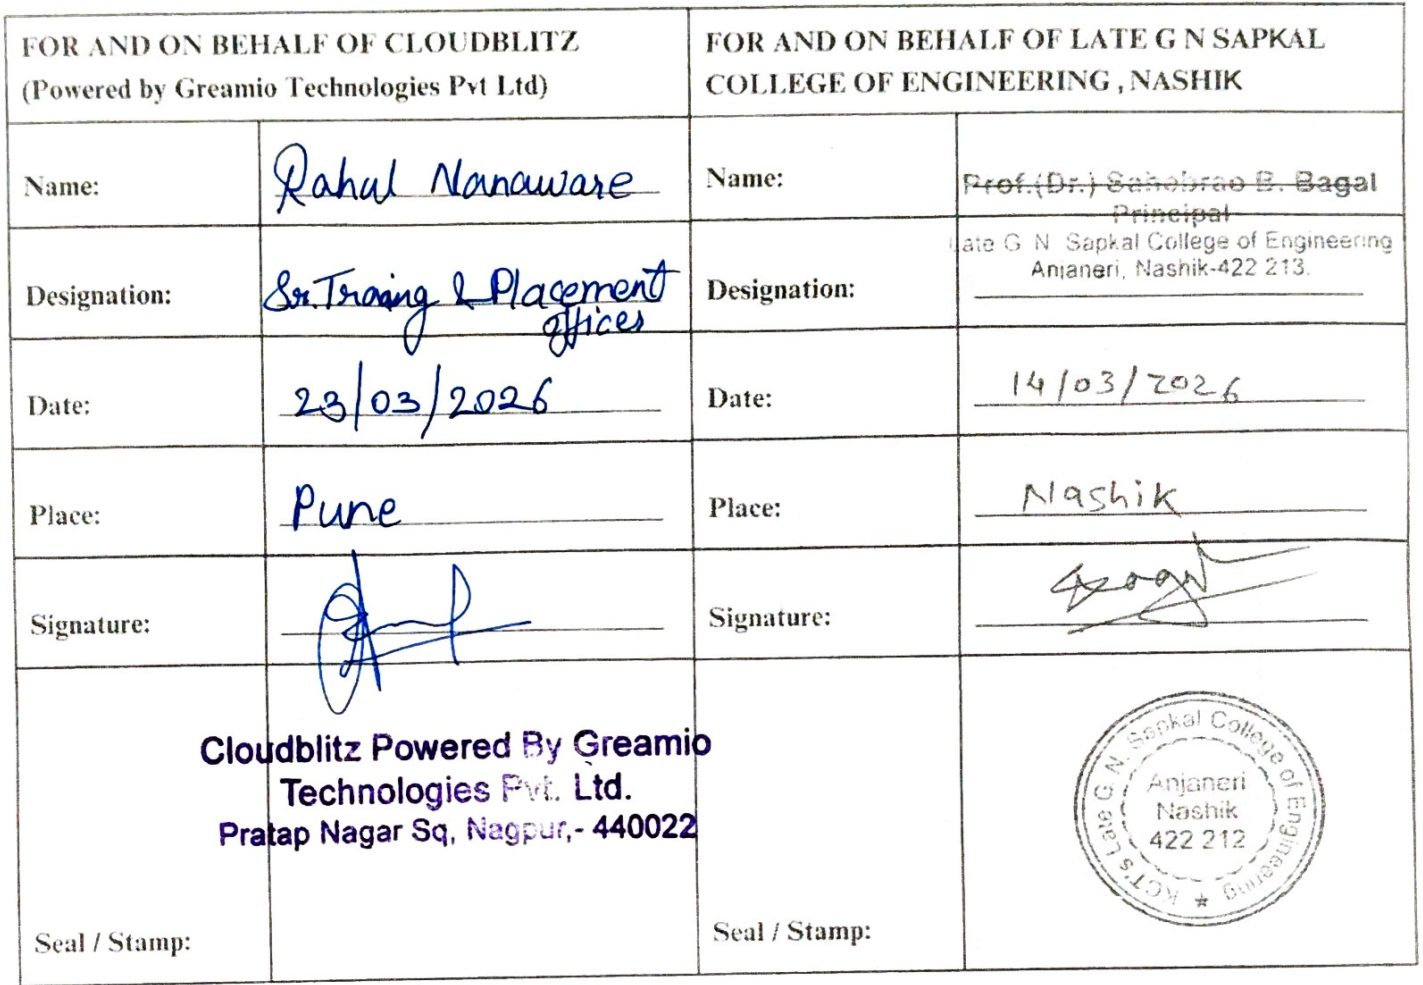 FOR AND ON BEHALF OF CLOUDBLITZ
(Powered by Greamio Technologies Pvt Ltd)
FOR AND ON BEHALF OF LATE G N SAPKAL
COLLEGE OF ENGINEERING , NASHIK
Name:
Rahul Nanaware
Name:
Prof.(Dr.) Sahebrao B. Bagal
Principal
Late G. N. Sapkal College of Engineering
Anjaneri, Nashik-422 213.
Designation:
Sr. Traing & Placement
offices
Designation:
Date:
23/03/2026
Date:
14/03/2026
Place:
Pune
Place:
Nashik
Signature:
Signature:
Cloudblitz Powered By Greamio
Technologies Pvt. Ltd.
Pratap Nagar Sq, Nagpur,- 440022
Seal / Stamp:
KCT's Late G. N. Sapkal College of Engineering
Anjaneri
Nashik
422 212
Seal / Stamp: